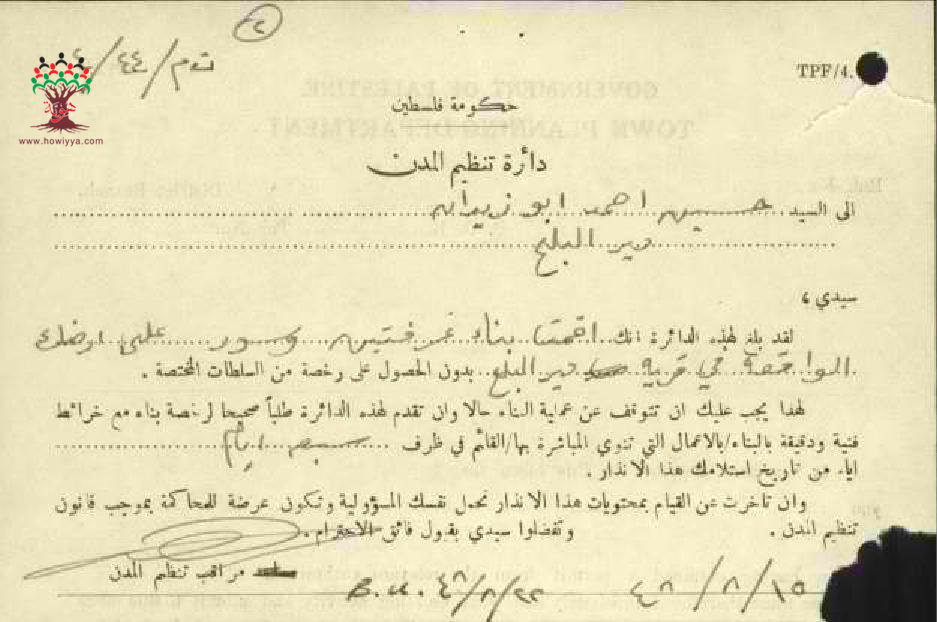 ٢
ت م/٤٤/٤
TPF/4.
www.howiyya.com
حكومة فلسطين
دائرة تنظيم المدن
الى السيد حسين احمد ابو زيدان
دير البلح
سيدي ،
لقد بلغ لهذه الدائرة انك اقمت بناء غرفتين وسور على ارضك
الواقعة في قرية دير البلح بدون الحصول على رخصة من السلطات المختصة .
لهذا يجب عليك ان تتوقف عن عملية البناء حالا وان تقدم لهذه الدائرة طلباً صحيحا لرخصة بناء مع خرائط
فنية ودقيقة بالبناء/بالاعمال التي تنوي المباشرة بها/القائم في ظرف سبعة ايام
اياء من تاريخ استلامك هذا الانذار .
وان تأخرت عن القيام بمحتويات هذا الانذار تحمل نفسك المسؤولية وتكون عرضة للمحاكمة بموجب قانون
تنظيم المدن . وتفضلوا سيدي بقبول فائق الاحترام .
مراقب تنظيم المدن
٤٨/٨/١٥ ٤٨/٨/٢٢